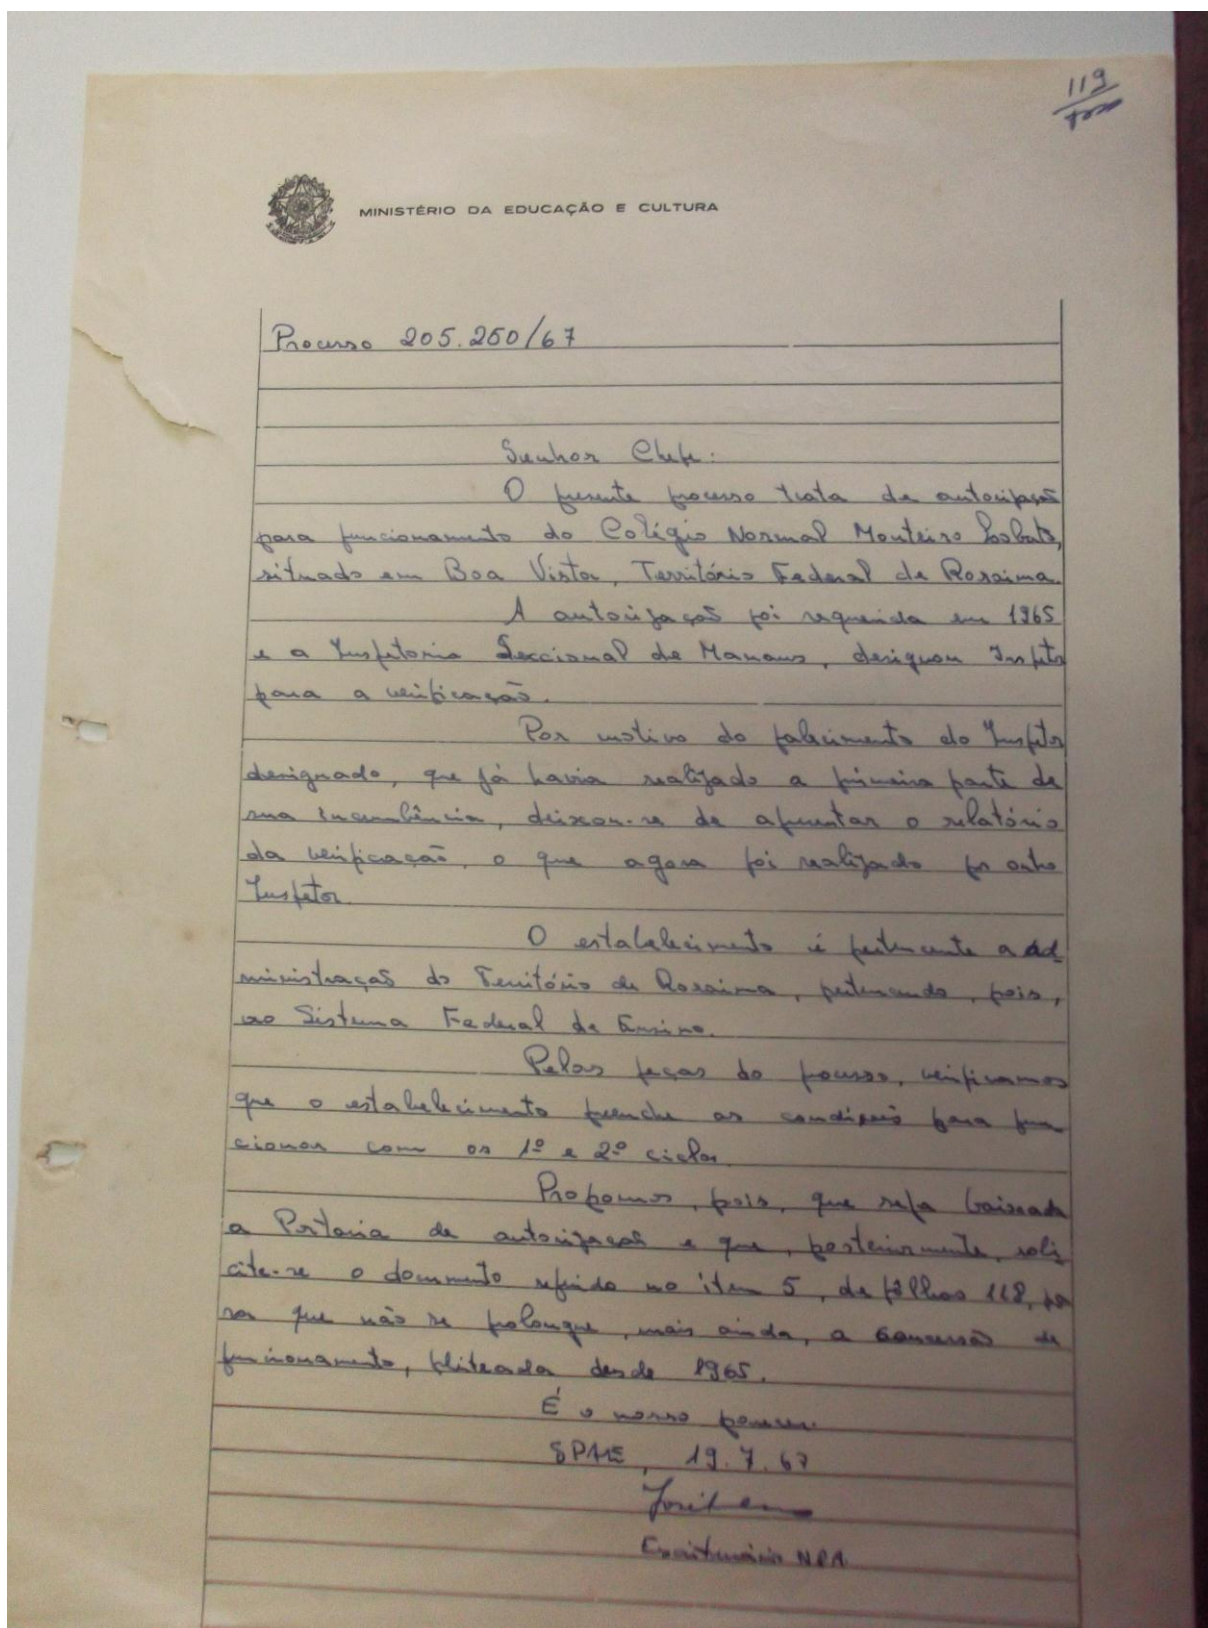 119
MINISTÉRIO DA EDUCAÇÃO E CULTURA
Processo 205.250/67
Senhor Chefe:
O presente processo trata de autorização
para funcionamento do Colégio Normal Monteiro Lobato,
situado em Boa Vista, Território Federal de Roraima.
A autorização foi requerida em 1965
e a Inspetoria Seccional de Manaus, designou Inspetor
para a verificação.
Por motivo do falecimento do Inspetor
designado, que já havia realizado a primeira parte de
sua incumbência, deixou-se de apresentar o relatório
da verificação, o que agora foi realizado por outro
Inspetor.
O estabelecimento é pertencente a ad_
ministração do Território de Roraima, pertencendo, pois,
ao Sistema Federal de Ensino.
Pelas peças do processo, verificamos
que o estabelecimento preenche as condições para fun
cionar com os 1º e 2º ciclos.
Propomos, pois, que seja baixada
a Portaria de autorização e que, posteriormente, soli
cite-se o documento referido no item 5, de fôlhas 118, pa
ra que não se prolongue, mais ainda, a concessão de
funcionamento, pliteada desde 1965.
É o nosso parecer.
SPAE, 19.7.67
Escriturário